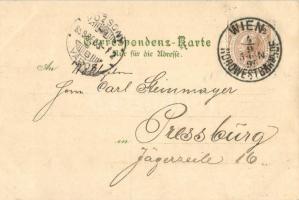 POZSONY
WIEN
NORDWESTBAHNHOF
Correspondenz-Karte
Nur für die Adresse.
An
Herrn Carl Steinmayer
in Pressburg
Jägerzeile 16